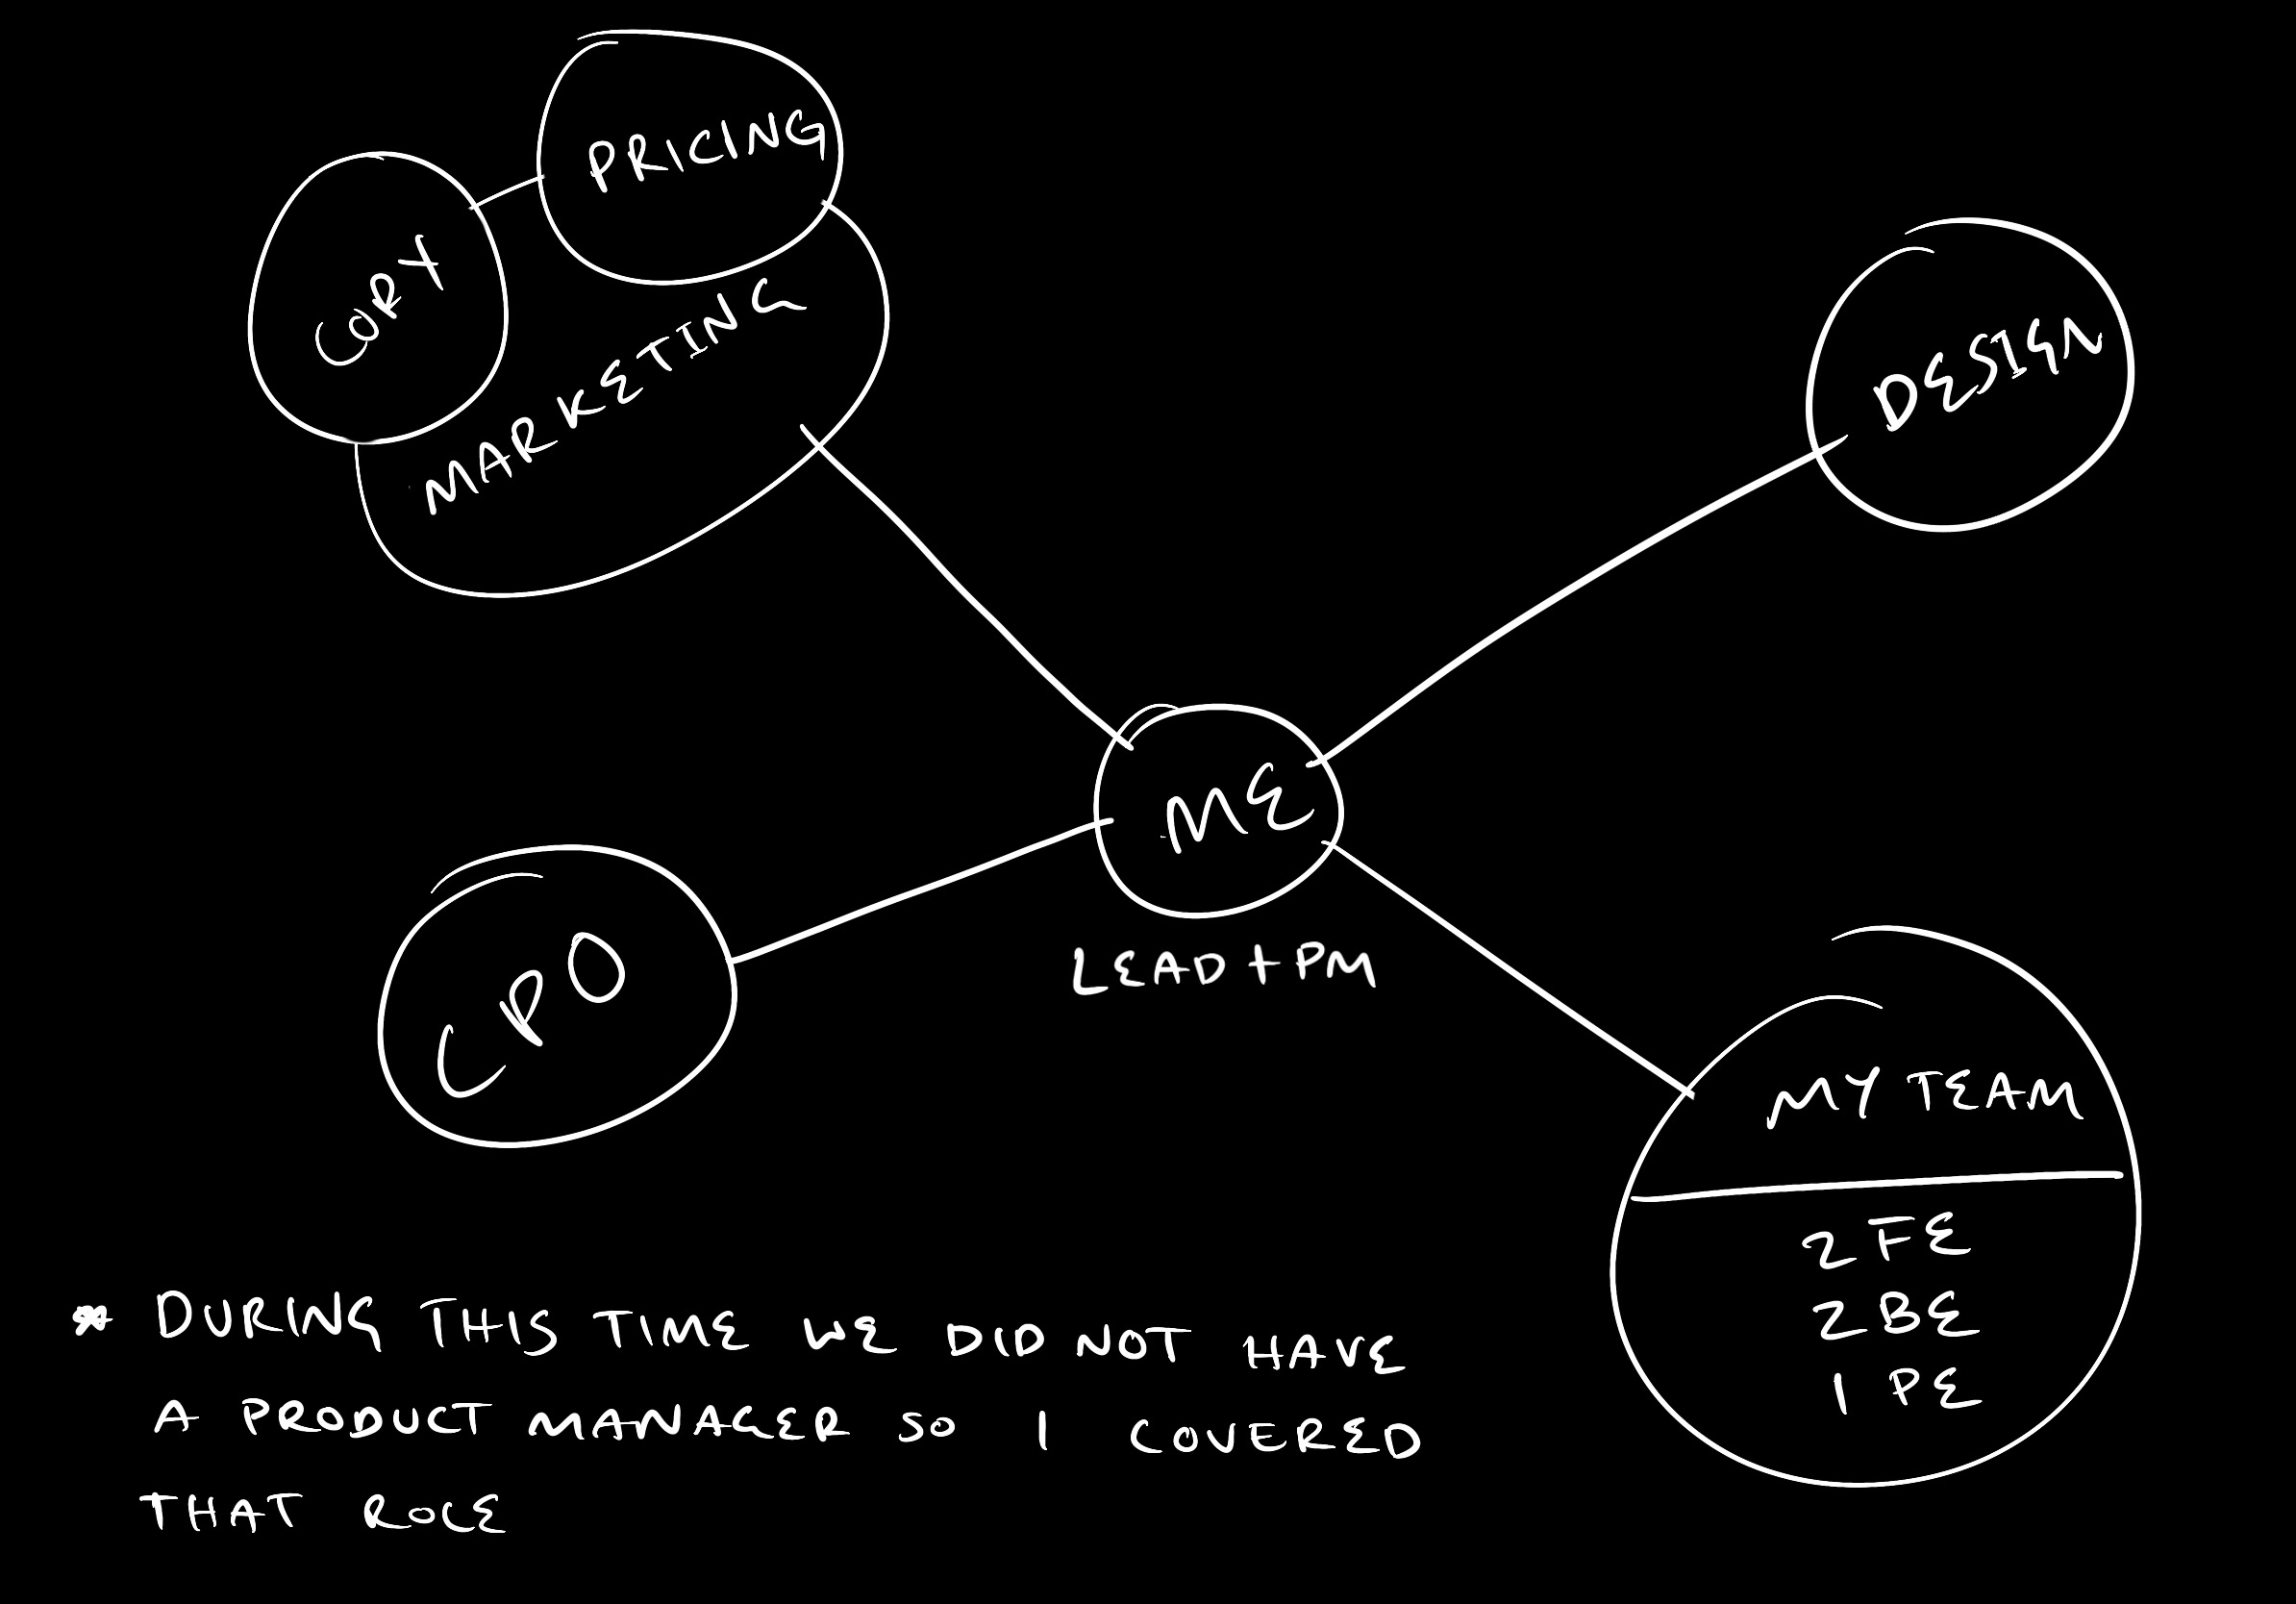 PRICING
COPY
MARKETING
DESIGN
ME
LEAD + PM
CPO
MY TEAM
2 FE
2 BE
1 PE
* DURING THIS TIME WE DID NOT HAVE
A PRODUCT MANAGER SO I COVERED
THAT ROLE